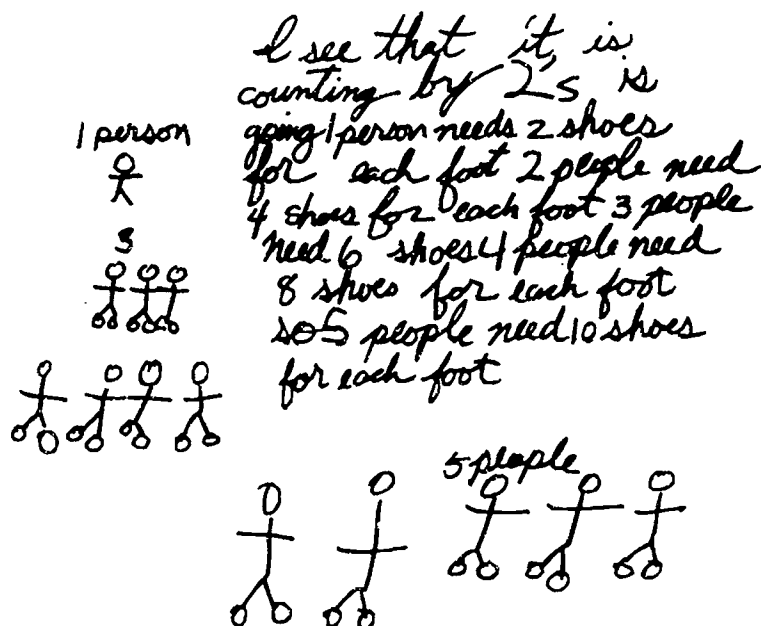 I see that it is
counting by 2's is
going 1 person needs 2 shoes
for each foot 2 people need
4 shoes for each foot 3 people
need 6 shoes 4 people need
8 shoes for each foot
so 5 people need 10 shoes
for each foot
1 person
3
5 people